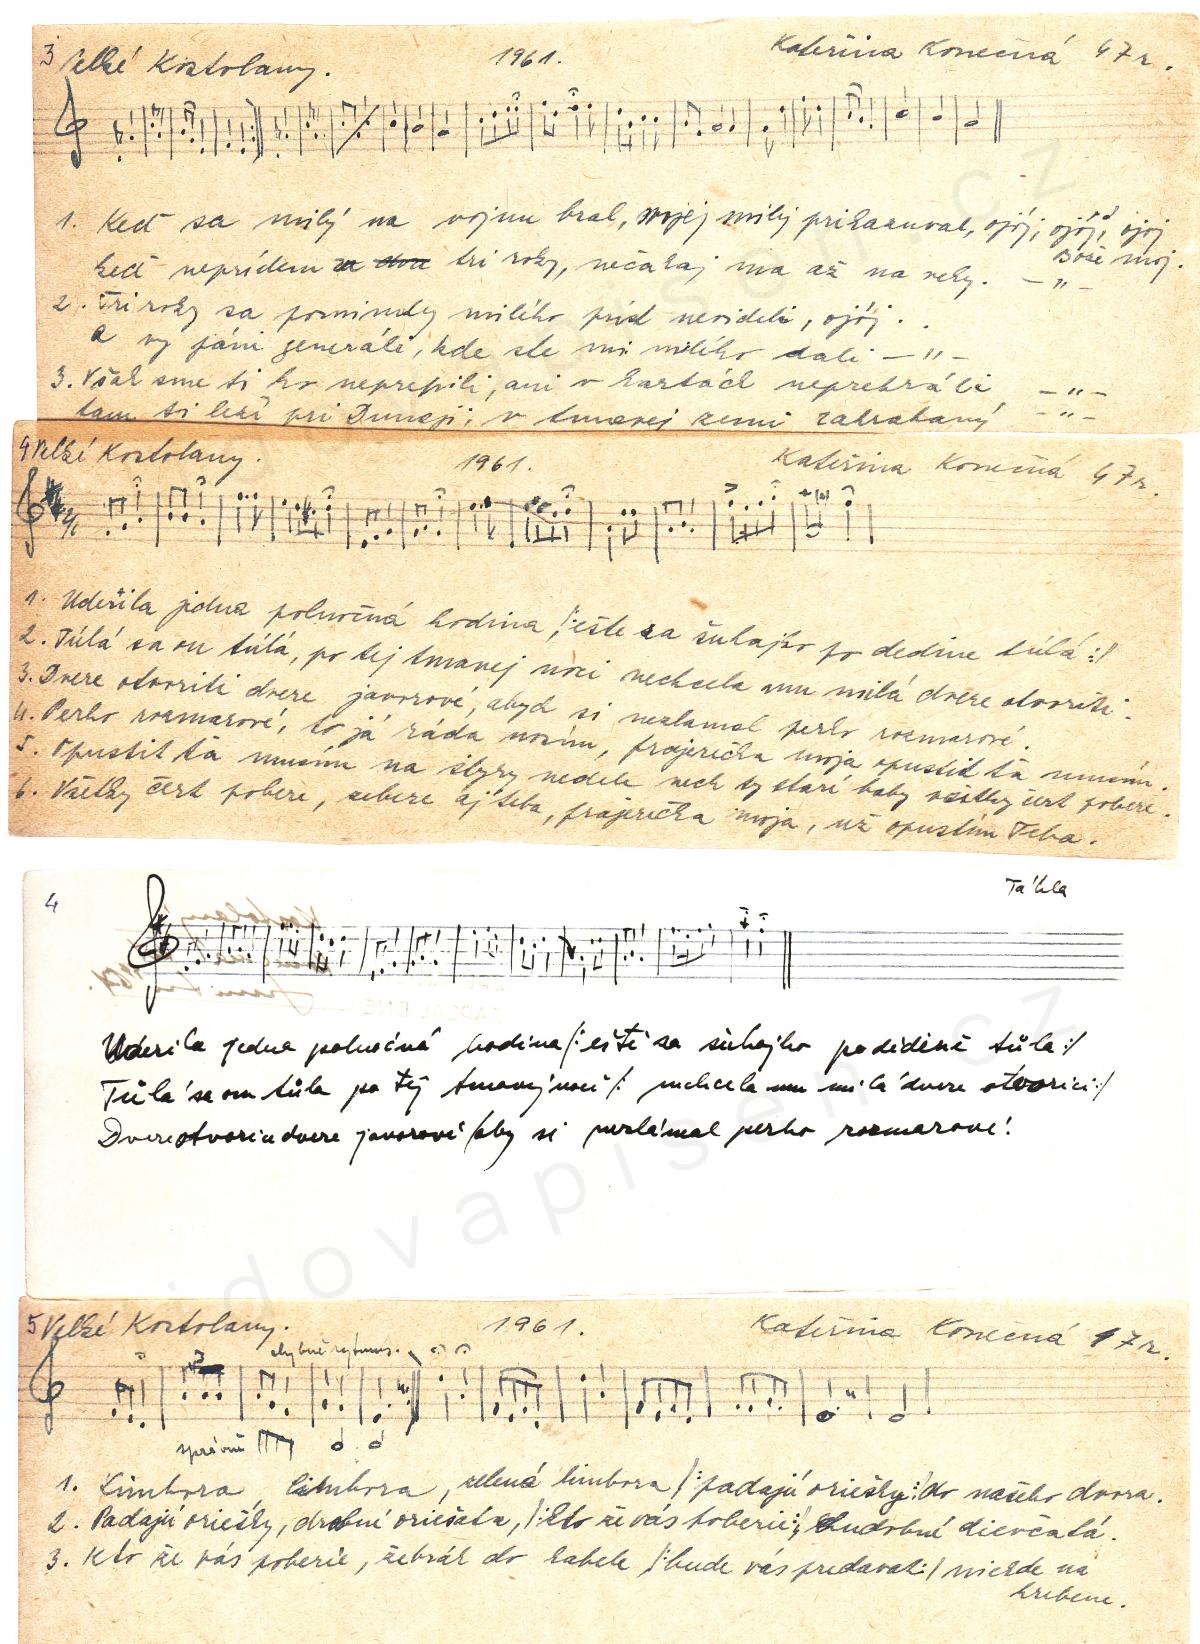 3 Velké Kostolany. 1961. Kateřina Konečná 47r.
1. Keď sa milý na vojnu bral, svojej milej prikazuval, ojój, ojój, ojój
Bože mój.
keď neprídem za dva tri roky, nečakaj ma až na veky. — " —
2. Tri roky sa pominuly milého prísť nevideli, ojój . .
A vy páni generáli, kde ste mi milého dali — " —
3. Však sme ti ho neprepili, ani v kartách neprehráli, — " —
tam ti leží pri Dunaji, v tmavej zemi zakrabaný — " —
4 Velké Kostolany. 1961. Kateřina Konečná 47r.
1. Udeřila jedna polnočná hodina /: ešte sa šuhajko po dedine túlá :/
2. Túlá sa on túlá, po tej tmavej noci nechcela mu milá dvere otvoriti.
3. Dvere otvoriti dvere javorové, abych si nezlamal perko rozmarové.
4. Perko rozmarové, to já ráda nosím, frajerečka moja opustit ťa musím.
5. Opustit ťa musím na štyry nedele nech ty staré baby všetky čert pobere.
6. Všetky čert pobere, zebere aj teba, frajerečka moja, už opustím Teba.
4 Táhla
Uderila jedna polnočná hodina /: ešte sa šuhajko po dedině túla :/
Túlá sa on túla po tej tmavej noci /: nechcela mu milá dvere otvorici :/
Dvere otvorici dvere javorové /aby si nezlámal perko rozmarové!
5 Velké Kostolany. 1961. Kateřina Konečná 47r.
chybné rytmus.
správně
1. Limbora limbora, zelená limbora /: padajú oriešky :/ do našeho dvora.
2. Padajú oriešky, drobné oriešata, /: kto že vás poberie :/ chudobné dievčatá.
3. Kto že vás poberie, žebrák do kabele /: bude vás predavat :/ niekde na
hrebene.